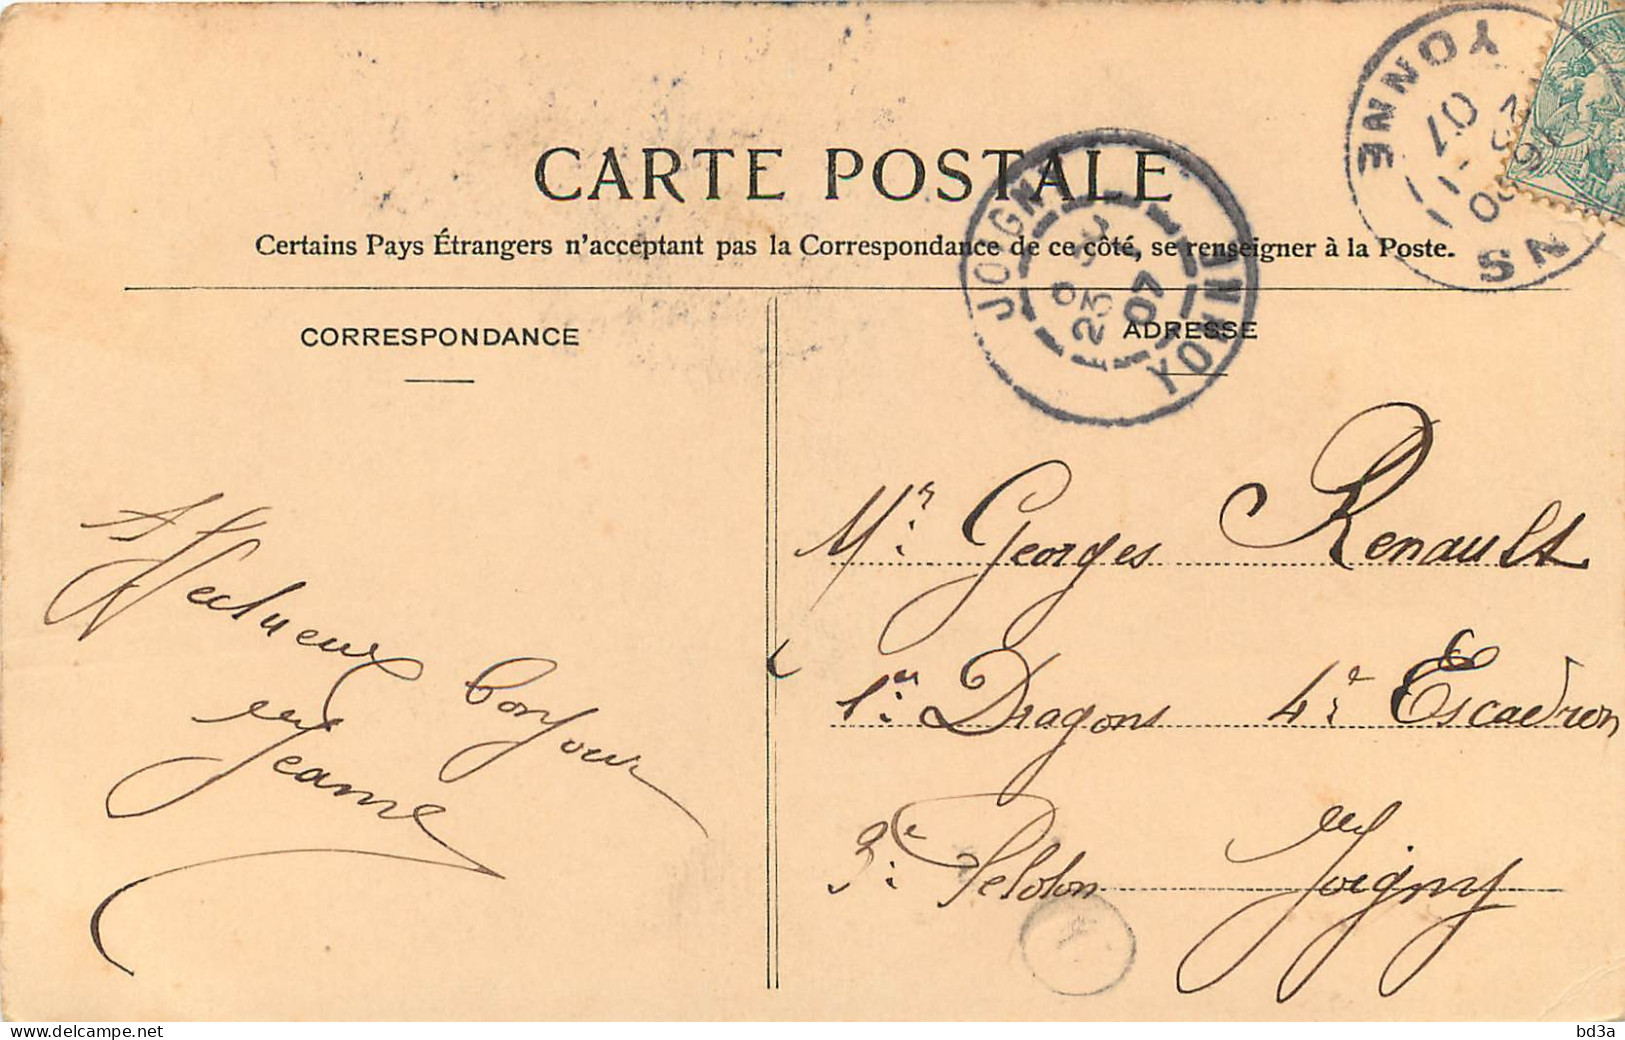 CARTE POSTALE
Certains Pays Étrangers n'acceptant pas la Correspondance de ce côté, se renseigner à la Poste.
CORRESPONDANCE
ADRESSE
JOIGNY
23
07
YONNE
YONNE
07
NS
Affectueux bonjour
Jeanne
Mr. Georges Renault
1er Dragons 4e Escadron
3e Peloton Joigny
www.delcampe.net
bd3a